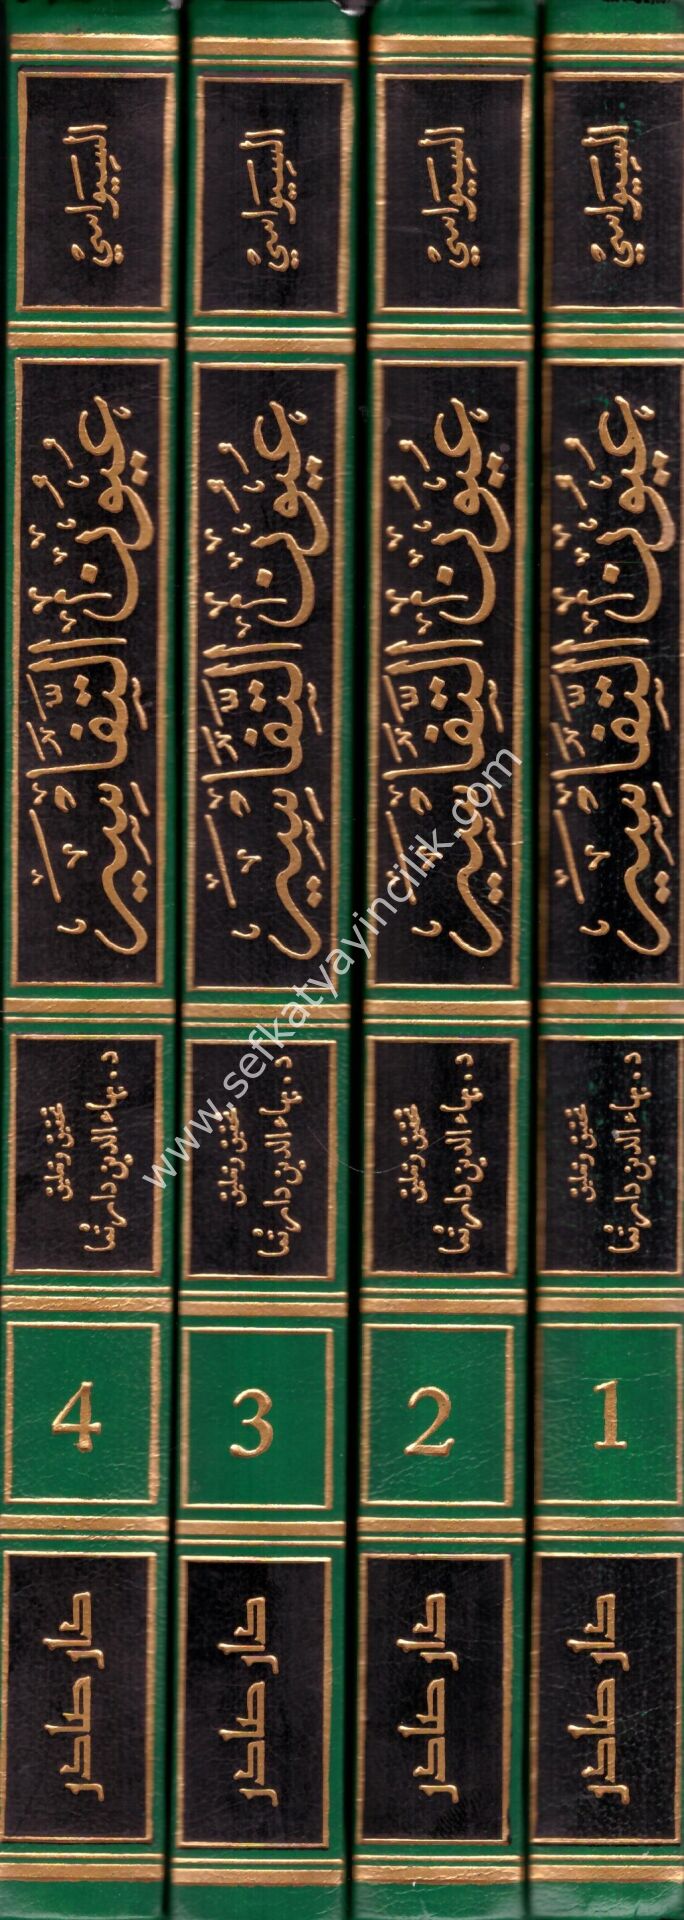 السيواسي
عُيُون التَّفَاسِير
تحقيق وتعليق
د. بهاء الدين دارتما
1
دار صادر
السيواسي
عُيُون التَّفَاسِير
تحقيق وتعليق
د. بهاء الدين دارتما
2
دار صادر
السيواسي
عُيُون التَّفَاسِير
تحقيق وتعليق
د. بهاء الدين دارتما
3
دار صادر
السيواسي
عُيُون التَّفَاسِير
تحقيق وتعليق
د. بهاء الدين دارتما
4
دار صادر
www.sefkatyayincilik.com